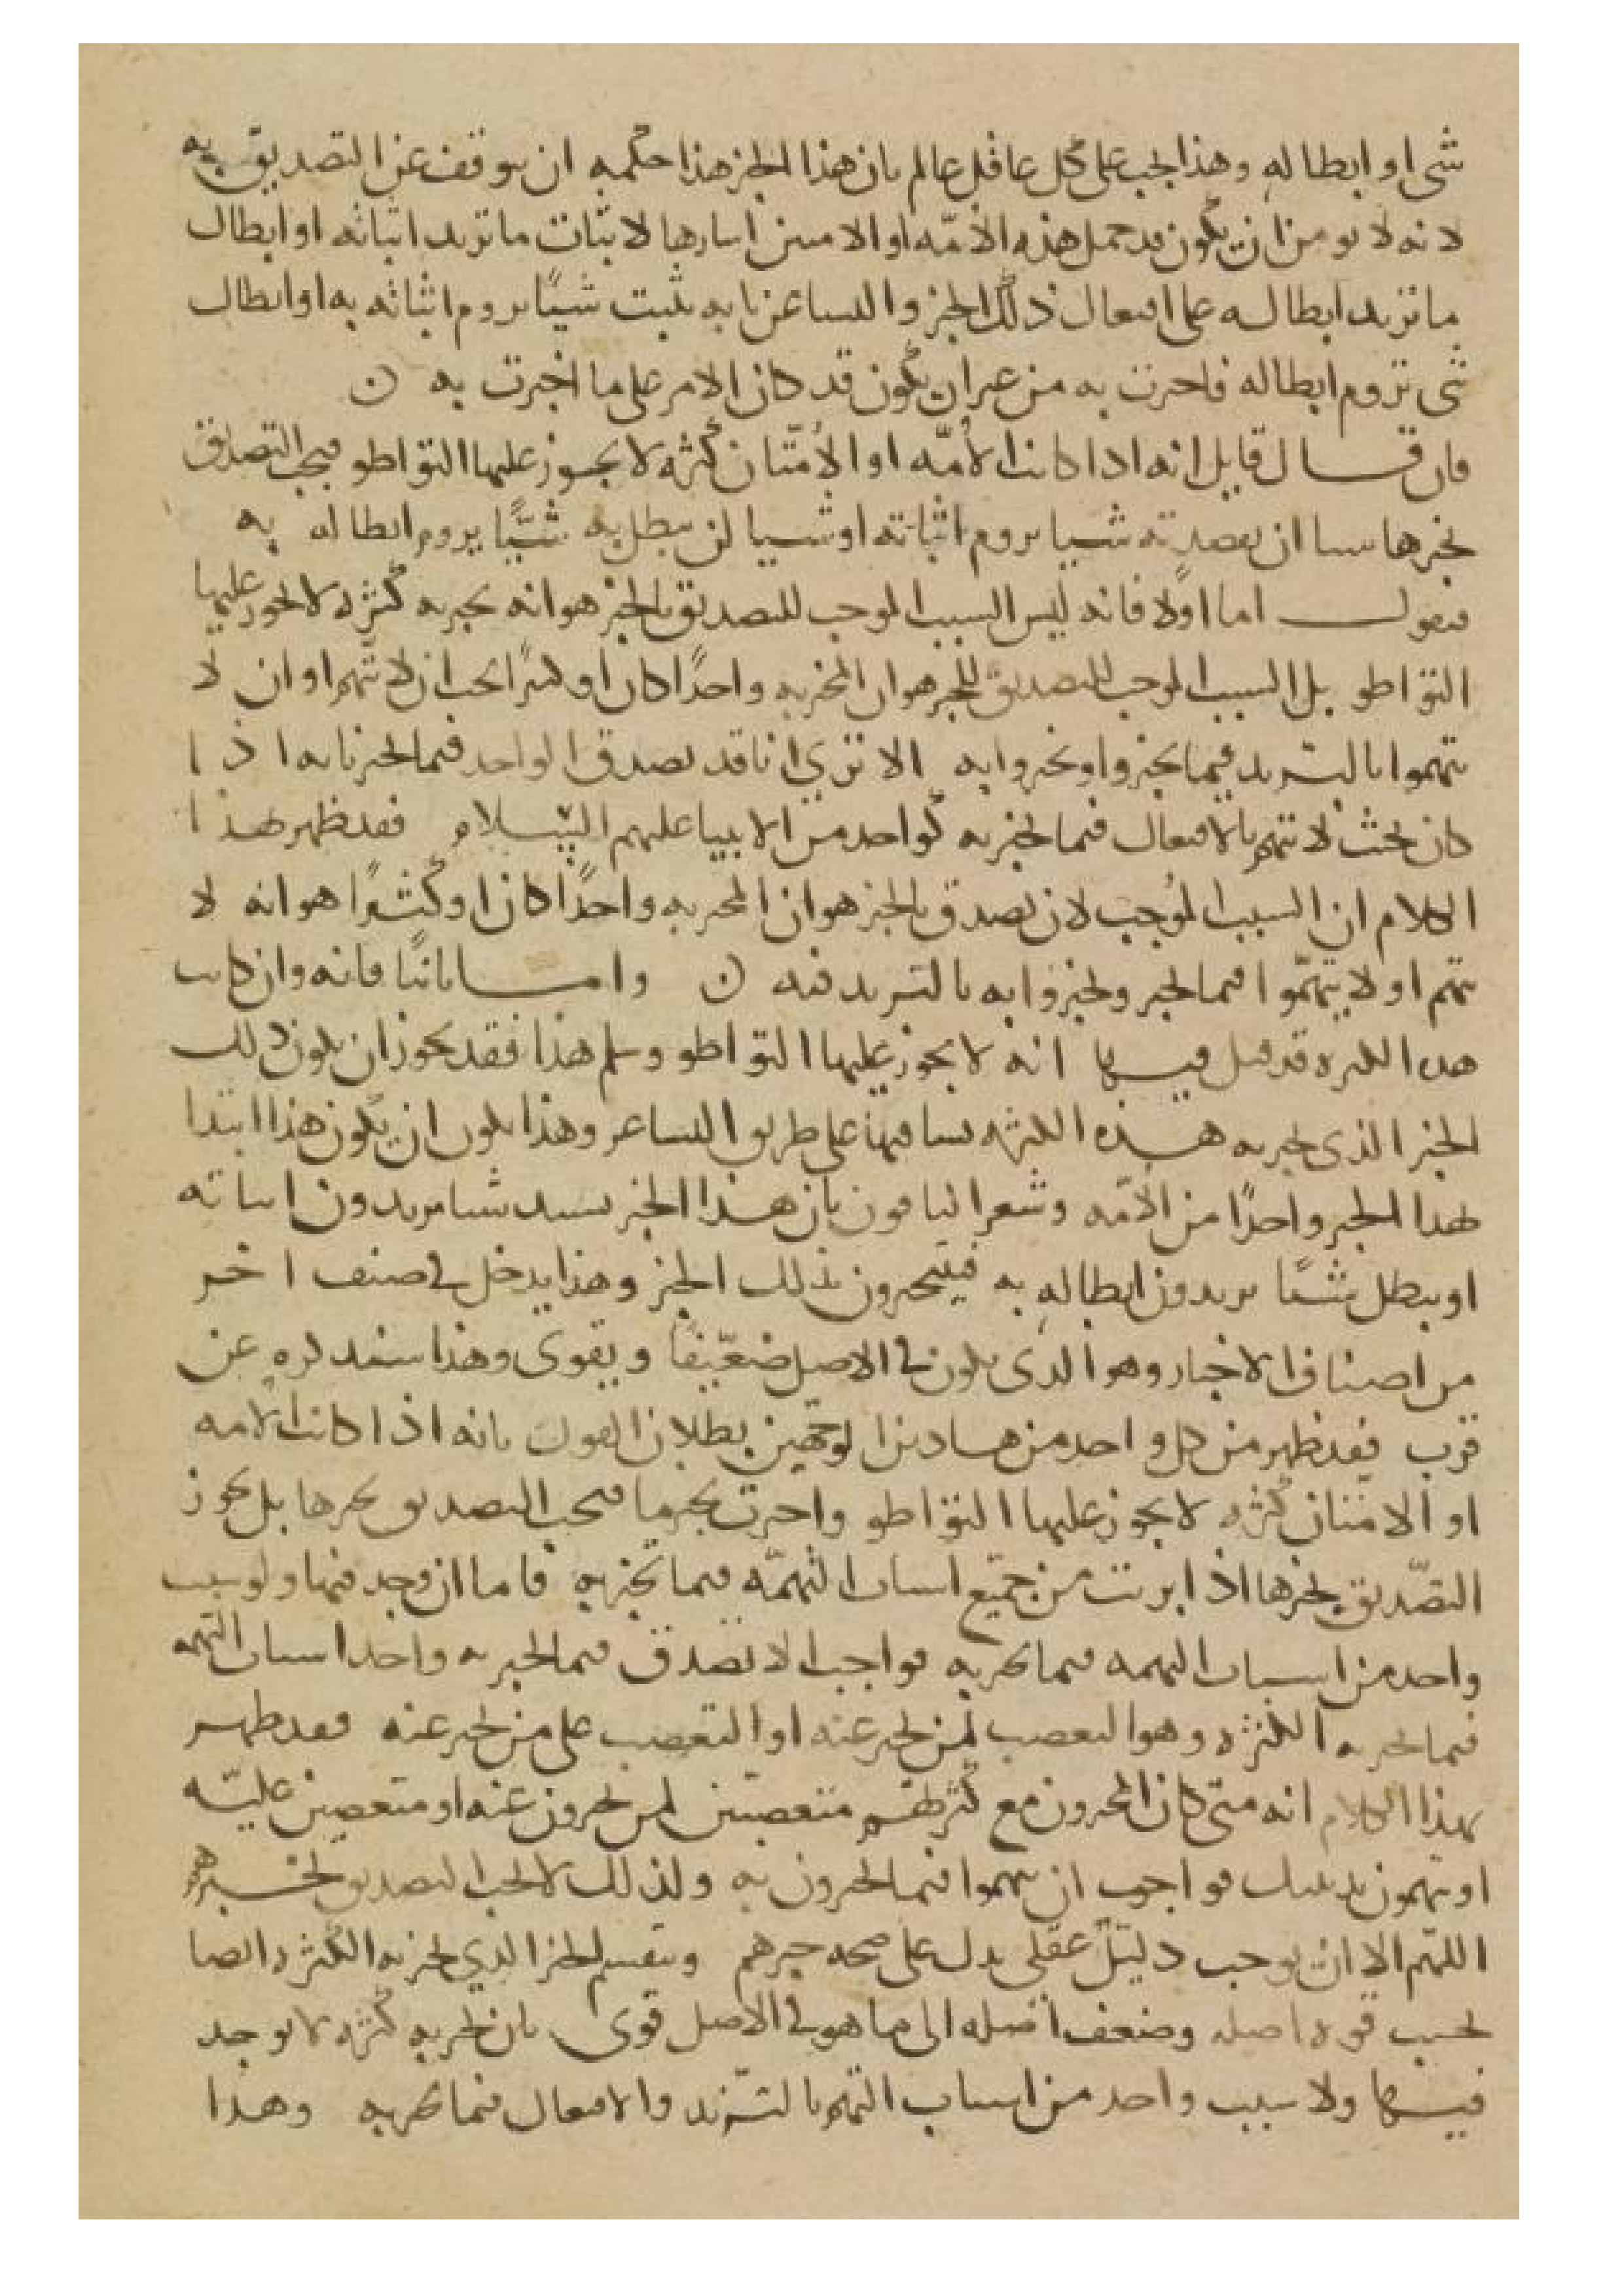 شى او ابطاله وهذا يجب على كل عاقل عالم بان هذا الخبر هذا حكمه ان يوقف عن التصديق به
لانه لا يومن ان يكون قد حمل هذه الامّه او الامتين ايثارها لاثبات ما تريد اثباته او ابطال
ما تريد ابطاله على افتعال ذلك الخبر و به يثبت شيئًا يروم اثباته به او ابطال
شى تروم ابطاله فاخبرت به من غير ان يكون قد كان الامر على ما اخبرت به ن
فان قال قايل انه اذا كانت الأمّه او الأمّتان كثره لا يجوز عليها التواطو فيجب التصديق
بخبرها شيا يروم اثباته او شيا لن يبطل به شيًّا يروم ابطاله به
فنقول اما اولًا فانه ليس السبب الموجب للتصديق بالخبر هو انه يخبر به كثره لا يجوز عليها
التواطو بل السبب الموجب للتصديق بالخبر هو ان المخبر به واحدًا كان او كثيرًا يجب ان لا يتهم او ان لا
يتهموا بالتزيد فيما يخبر او يخبروا به الا ترى انا قد نصدق الواحد فيما يخبرنا به اذا
كان بحيث لا يتهم بالافتعال فيما يخبر به كواحد من الانبيا عليهم السلام فقد ظهر بهذا
الكلام ان السبب الموجب لان نصدق بالخبر هو ان المخبر به واحدًا كان او كثيرًا هو انه لا
يتهم او لا يتهمّوا فيما يخبر ويخبروا به بالتزيد فيه ن واما ثانيًا فانه وان كانت
هذه الكثره قد قيل فيها انه لا يجوز عليها التواطو وسلم هذا فقد يجوز ان يكون ذلك
الخبر الذى يخبر به هذه الكثره نشا فيها على طريق وهذا يكون ان يكون هذا ابتدا
بهذا الخبر واحدًا من الامّه وشعر الباقون بان هذا الخبر شيا يريدون اثباته
او يبطل شيًا يريدون ابطاله به فيخبرون بذلك الخبر وهذا يدخل فى صنف اخر
من اصناف الاخبار وهو الذى يكون فى الاصل ضعيفًا ويقوى وهذا سنذكره عن
قرب فقد ظهر من كل واحد من هادين الوجهين بطلان القول بانه اذا كانت الامه
او الامتان كثره لا يجوز عليها التواطو واخبرت بخبر ما فيجب التصديق بخبرها بل يجوز
التصديق بخبرها اذا برئت من جميع اسباب التهمّه فيما تخبر به فاما ان وجد فيها ولو سبب
واحد من اسباب التهمه فيما تخبر به فواجب الا تصدق فيما تخبر به واحد اسباب التهمه
فيما تخبر به الكثره وهو التعصب لمن تخبر عنه او التعصب على من تخبر عنه فقد ظهر
بهذا الكلام انه متى كان المخبرون مع كثرتهم متعصبين لمن يخبرون عنه او متعصبين عليه
او يتهمون فواجب ان يتهموا فيما يخبرون به ولذلك لا يجب التصديق بخبرهم
اللهّم الا ان يوجب دليلٌ عقلي يدل على صحه خبرهم وينقسم الخبر الذي يخبر به الكثره ايضا
بحسب قوه اصله وضعف اصله الى ما هو فى الاصل قوى بان يخبر به كثره لا يوجد
فيها ولا سبب واحد من اسباب التهم بالتزيد والافتعال فيما تخبر به وهذا